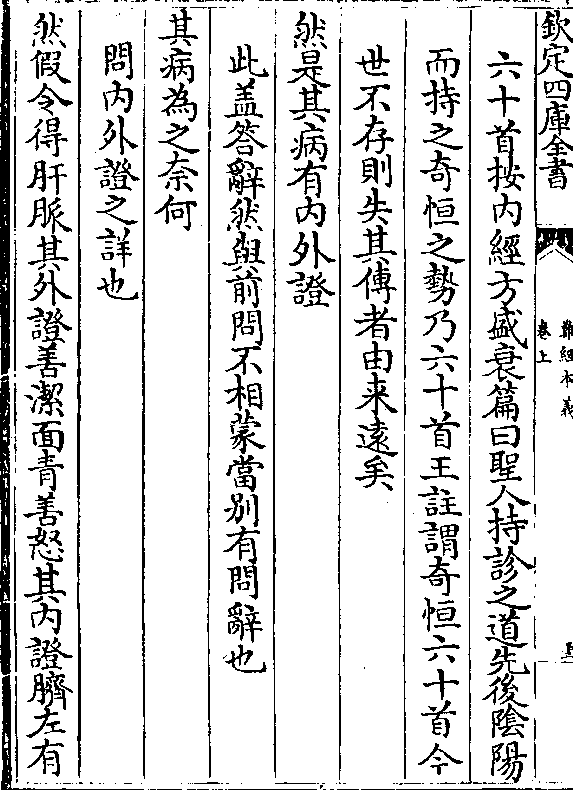 欽定四庫全書
難經本義
卷上
六十首按內經方盛衰篇曰聖人持診之道先後陰陽
而持之奇恒之勢乃六十首王註謂奇恒六十首今
世不存則失其傳者由来遠矣
然是其病有内外證
此盖答辭然與前問不相蒙當别有問辭也
其病為之奈何
問内外證之詳也
然假令得肝脈其外證善潔面青善怒其内證臍左有